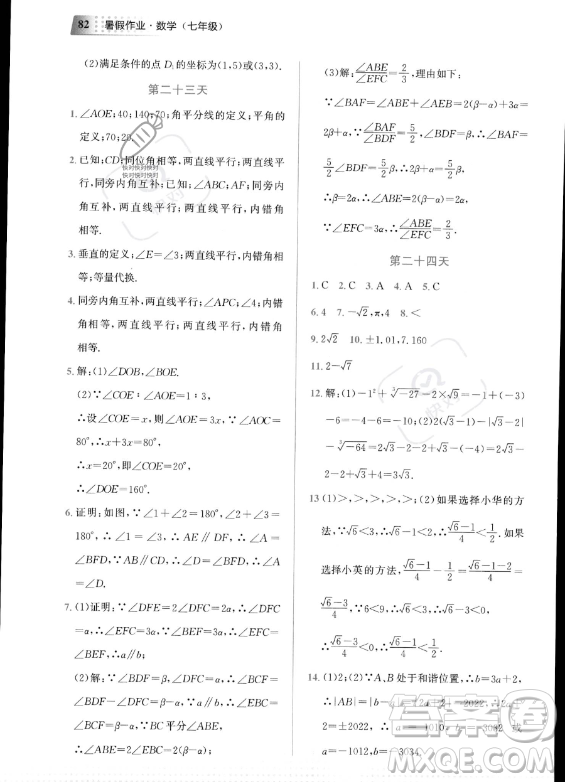 82 暑假作业·数学(七年级)
(2)满足条件的点 D₁ 的坐标为(1,5)或(3,3).
第二十三天
1. ∠AOE;40;140;70;角平分线的定义;平角的
定义;70;20.
2. 已知;CD;同位角相等,两直线平行;两直线平
行,同旁内角互补;已知;∠ABC;AF;同旁内
角互补,两直线平行;两直线平行,内错角相
等.
3. 垂直的定义;∠E=∠3;两直线平行,内错角相
等;等量代换.
4. 同旁内角互补,两直线平行;∠APC;∠2;内错
角相等,两直线平行;两直线平行,内错角
相等.
5. 解:(1)∠DOB,∠BOE.
(2)∵∠COE:∠AOE=1:3,
∴设∠COE=x,则∠AOE=3x,∵∠AOC=
80°,∴x+3x=80°,
∴x=20°,即∠COE=20°,
∴∠DOE=160°.
6. 证明:如图,∵∠1+∠2=180°,∠2+∠3=
180°,∴∠1=∠3,∴AE∥DF,∴∠A=
∠BFD,∵∠A=∠D,∴∠D=∠BFD,
∴AB∥CD.
7. (1)证明:∵∠DFE=2∠DFC,∠DFC=
α,∴∠EFC=3α,∵∠ABC=3α,∴∠ABC=
∠EFC,∴a∥b.
(2)解:∵∠DFC=α,∠BDF=β,
∴∠DCB=β-α,∵BC平分∠ABD,
(3)解:∠ABE/∠EFC=2/3,理由如下:
∵∠BAF=∠ABE+∠AEB=2(β-α)+3α,
∴∠BAF/∠BDF=5/2,∴∠BAF=
5/2∠BDF=5/2β,∴2(β-α)+3α=5/2β,
∴β=2α,∴∠ABE=2(β-α)=2α,
∵∠EFC=3α,∴∠ABE/∠EFC=2/3.
第二十四天
1. C 2. C 3. A 4. A 5. C
6. 4 7. -√2,π,4 8. <
9. 2√2 10. ±1.01,7.160
11. 2-√7
12. 解:(1)-1²+∛-27-2×√9=-1+(-3)
-6=-4-6=-10;(2)2(√3-1)-|√3-2|
-∛-64=2√3-2-2+√3+4=√3+
2√3=3√3.
13 (1)>,>,>,>;(2)如果选择小华的方
法,∵√6<3,∴√6-1<2,∴(√6-1)/4<1/2.如果
选择小英的方法,(√6-1)/4-1/2=(√6-1-2)/4=
(√6-3)/4.∵6<9,∴√6<3,∴√6-3<0,∴
(√6-3)/4<0,∴(√6-1)/4<1/2.
14. (1)2;(2)∵A、B处于和谐位置,∴b=3a+2,
a=±2022,∴a=1010,b=3032 或
a=-1012,b=-3034.